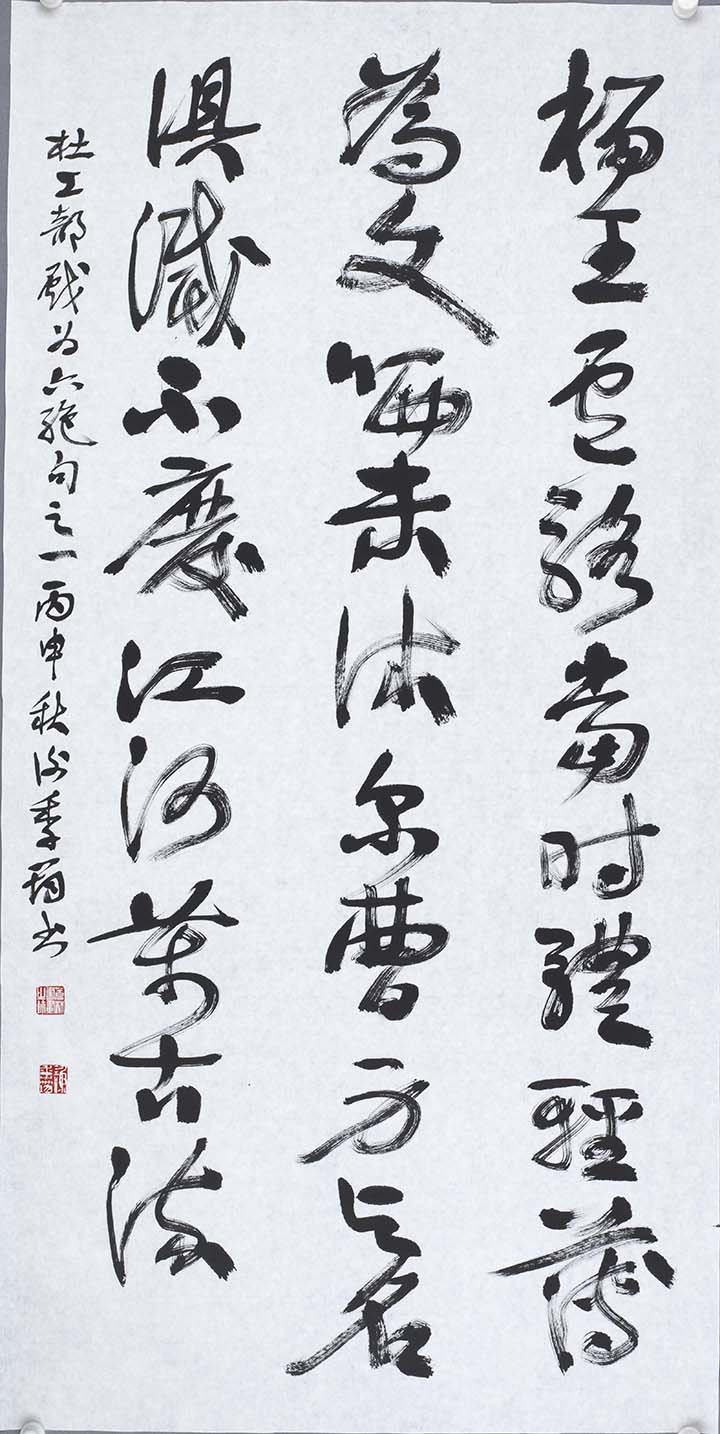 楊王盧駱當时體輕薄
為文哂未休尔曹身与名
俱滅不廢江河萬古流
杜工部戲为六絶句之一丙申秋季书